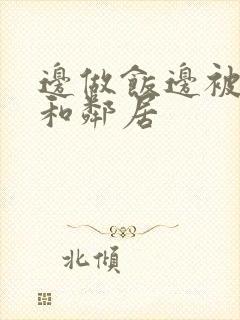 邊做飯邊被
和鄰居
北傾